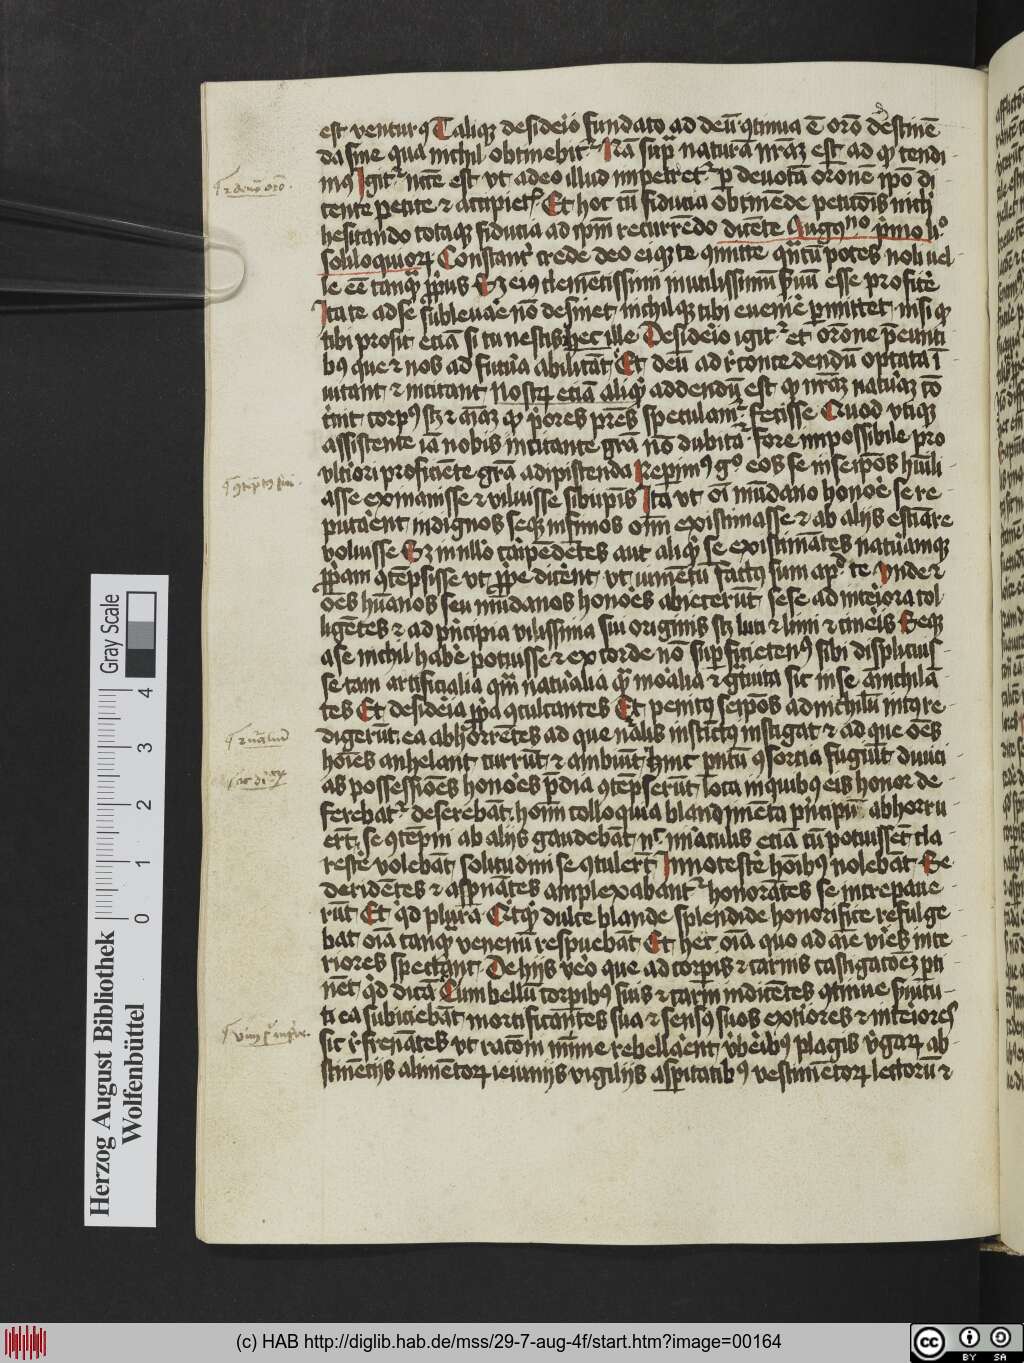 est venturꝰ Taliqꝫ desideio fundato ad deū ꝯtinua ē orō destinē
da sine qua nichil obtinebit Nā supra naturā nrāꝫ est ad qd tendi
mus Igitr necē est vt a deo illud impetretr p devotā orōnē ipo di
cente petite ⁊ accipietis Et hoc cū fiducia obtinēde peticōis nichil
hesitando totaqꝫ fiducia ad ipm recurrēdo dicēte Augꝰno pmo li°
soliloquiorꝝ Constantr crede deo eiqꝫ te ꝯmitte qntū potes noli vel
le eē tanqꝫ ppius Sꝫ eius clementissimi inutilissimū suū esse profitē
Ita te ad se sublevare nō desinet nichilqꝫ tibi evenire pmittet nisi qd
tibi prosit etiā si tu nescis hec ille Desideio igitr et orōne preunti
bꝰ que ⁊ nos ad futura abilitāt Et deū ad concedendū optata ī
vitant ⁊ incitant Nostrꝝ etiā aliqd addendū est qd nrāꝫ naturaꝫ cō
tinit corpꝰ sꝫ ⁊ aīaꝫ qd priores pres speculamr fecisse Quod vtiqꝫ
assistente iā nobis incitante grā nō dubitar fore impossibile pro
vlteriori proficiēte grā adipiscenda Repimꝰ g° eos se in seipōs humili
asse exinanisse ⁊ viluisse sibiipis Ita vt oī mūdano honore se re
putarent indignos seqꝫ infimos oīm existimasse ⁊ ab alijs estīare
voluisse Sꝫ in nullo carpedētes aut aliqd se existimātes naturamqꝫ
ppriam ꝯtēpsisse vt pphe dicerent vt iumentū factus sum apd te Vnde ⁊
oēs huānos seu mūdanos honoēs abiecerūt sese ad interiora col
ligētes ⁊ ad pricipia vilissima sui originis sꝫ luti ⁊ limi ⁊ cineris Seqꝫ
a se nichil habere potuisse ⁊ ex corde nō supficietenꝰ sibi displicuis
se tam artificialia qm naturalia qm moralia ⁊ gratuita sic in se anichilā
tes Et desideria ppria ꝯculcantes Et penitus seipōs ad nichilū iniqre
digerūt ea abhorrētes ad que nālis instinctus instigat ⁊ ad que oēs
hoīes anhelant currūt ⁊ ambiūt hinc prntū ꝯsorcia fugiūt divici
as possessiōes honoēs pdia ꝯtēpserūt loca in quibus eis honor de
ferebatr deserebāt hoīm colloquia blandimēta principū abhorru
erūt se ꝯtēpni ab alijs gaudebāt nec miraculis etiā cū potuissēt cla
rescē volebāt solitudini se ꝯtulerūt Innotescē hoibꝰ nolebāt Se
deridētes ⁊ aspnātes amplexabantr honorātes se increpave
rūt Et qd plurā Citqd dulce blande splendide honorifice refulge
bat oīa tanqꝫ venenū respuebāt Et hec oīa quo ad aīe vires inte
riores spectant De hijs vero que ad corpis ⁊ carnis castigacōeꝫ pti
nēt qd dicā Cum bellū corpibus suis ⁊ carni indicētes ꝯtinue spiritu
ti ea subiciebāt mortificantes sua ⁊ sensus suos extriores ⁊ interiores
sic refrenātes vt racōni mīme rebellarent verberibus plagis vigarꝝ ab
stinētijs alimētorꝝ ieiunijs vigilijs aspitatibꝰ vestimētorꝝ lectorū ⁊
Gray Scale
4 3 2 1 0
Herzog August Bibliothek
Wolfenbüttel
(c) HAB http://diglib.hab.de/mss/29-7-aug-4f/start.htm?image=00164
cc BY SA